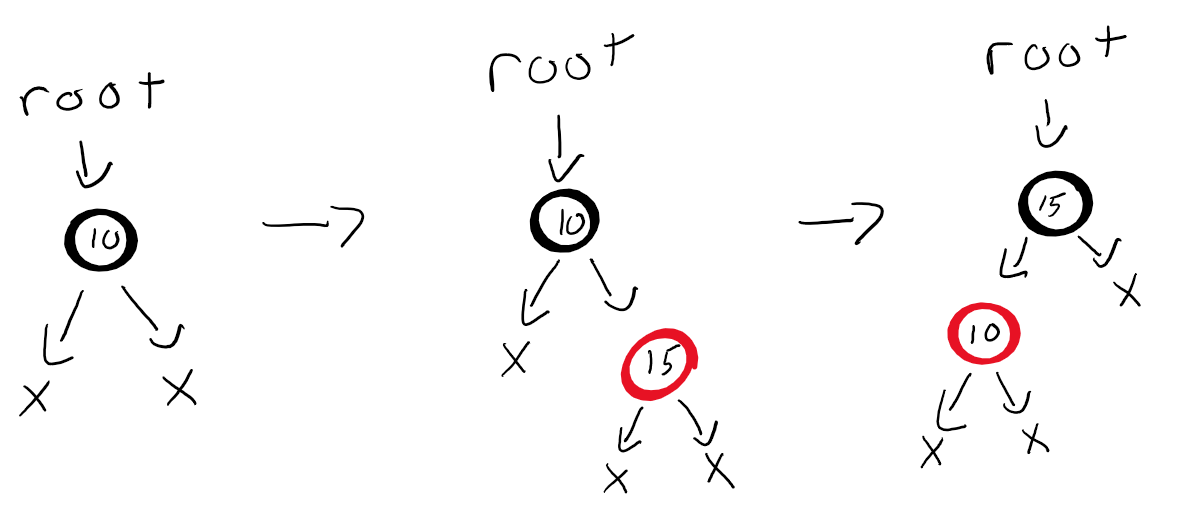 root
10
X X
root
10
X
15
X X
root
15
X
10
X X